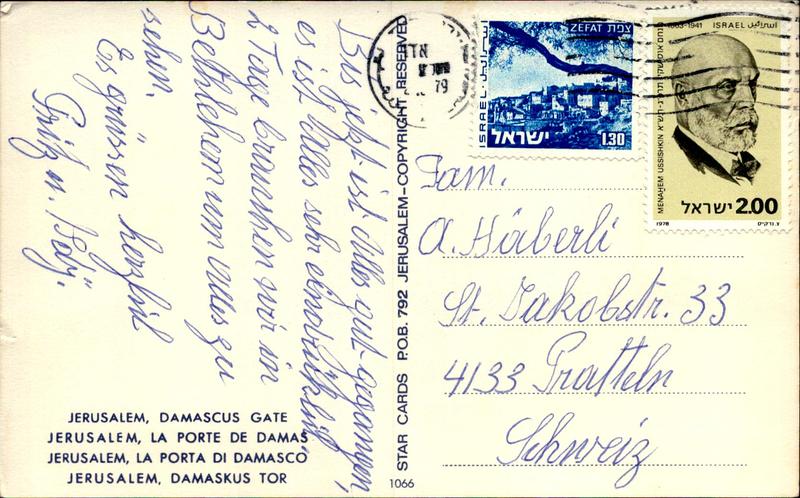 Bis jetzt ist Alles gut gegangen,
es ist Alles sehr eindrücklich,
2 Tage brauchen wir in
Bethlehem um Alles zu
sehn.
Es grüssen herzlich
Fritz u.
JERUSALEM, DAMASCUS GATE
JERUSALEM, LA PORTE DE DAMAS
JERUSALEM, LA PORTA DI DAMASCO
JERUSALEM, DAMASKUS TOR
STAR CARDS P.O.B. 792 JERUSALEM–COPYRIGHT RESERVED
1066
79
ZEFAT צפת
ISRAEL اسرائيل
ישראל 1.30
1863-1941 ISRAEL اسرائيل
MENAHEM USSISHKIN מנחם אוסישקין
ישראל 2.00
1978
Fam.
A. Häberli
St. Jakobstr. 33
4133 Pratteln
Schweiz